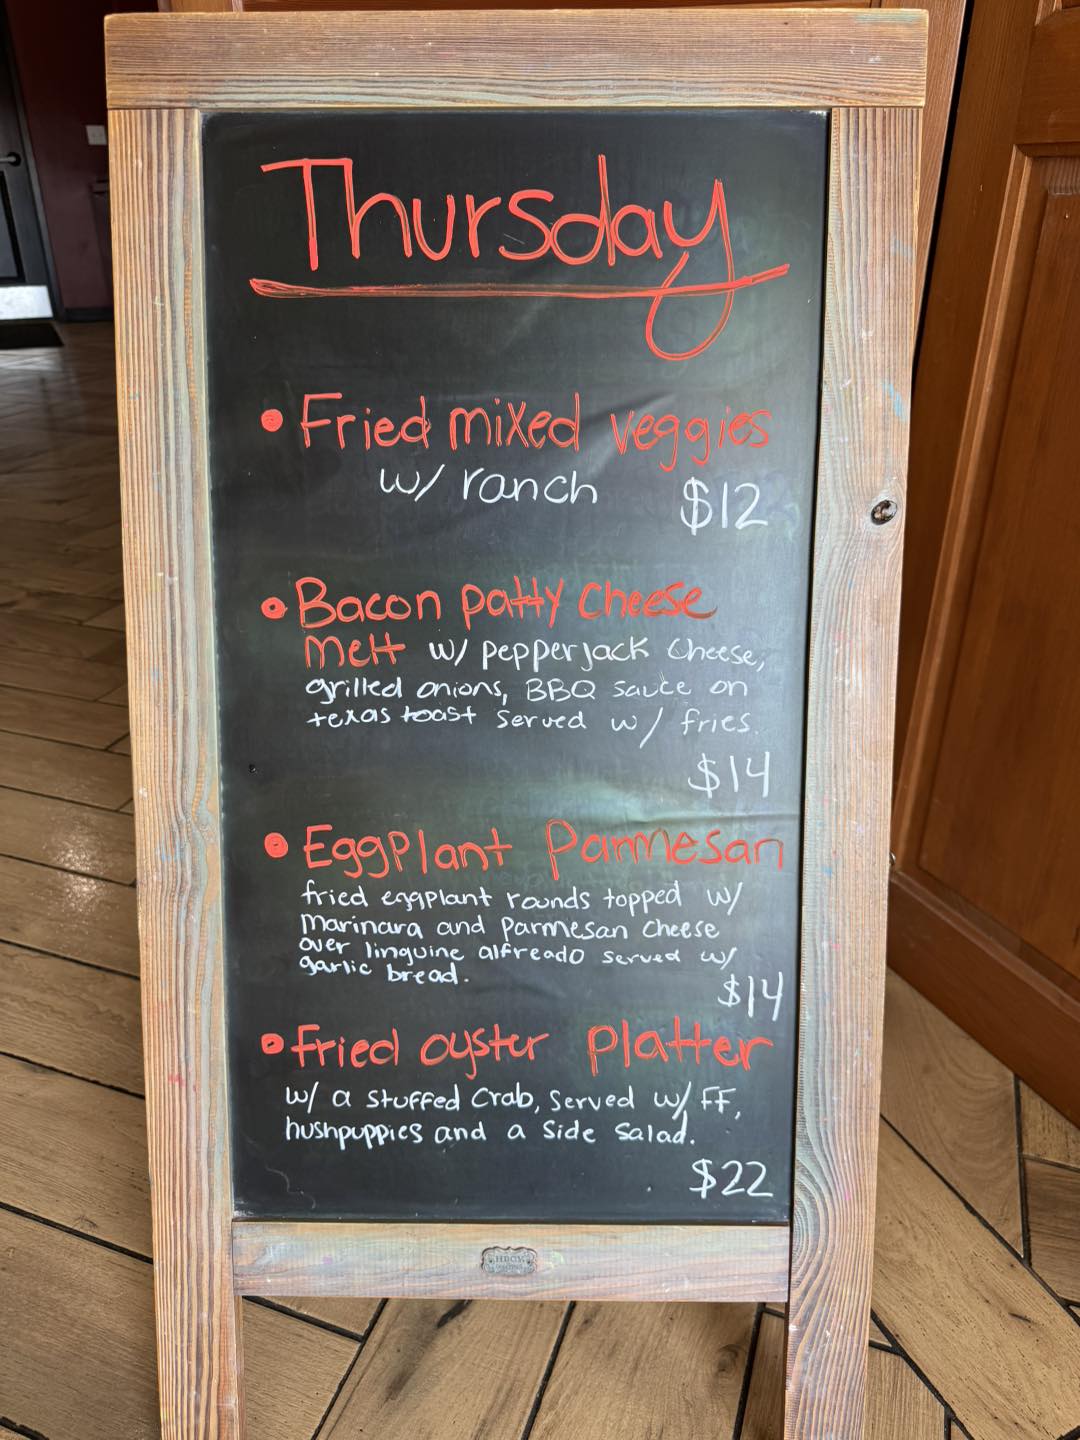 Thursday
• Fried mixed veggies
w/ ranch $12
• Bacon patty cheese
melt w/ pepperjack cheese,
grilled onions, BBQ sauce on
texas toast served w/ fries.
$14
• Eggplant Parmesan
fried eggplant rounds topped w/
marinara and parmesan cheese
over linguine alfreado served w/
garlic bread.
$14
• Fried oyster platter
w/ a stuffed crab, served w/ FF,
hushpuppies and a side salad.
$22